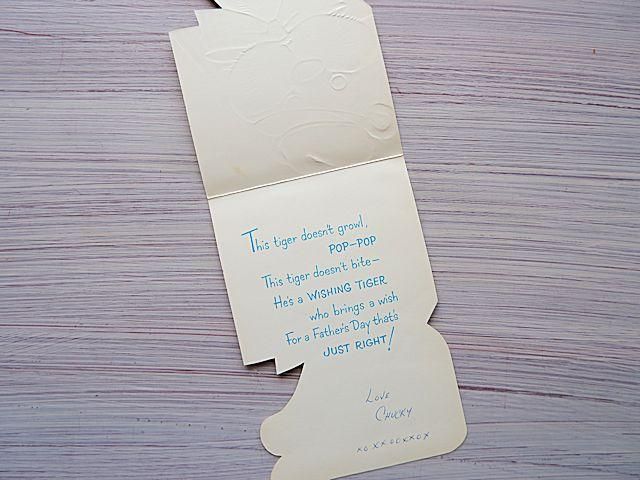 This tiger doesn't growl,
POP-POP
This tiger doesn't bite—
He's a WISHING TIGER
who brings a wish
For a Father's Day that's
JUST RIGHT!
LOVE
CHUCKY
XOXXOOXXOX